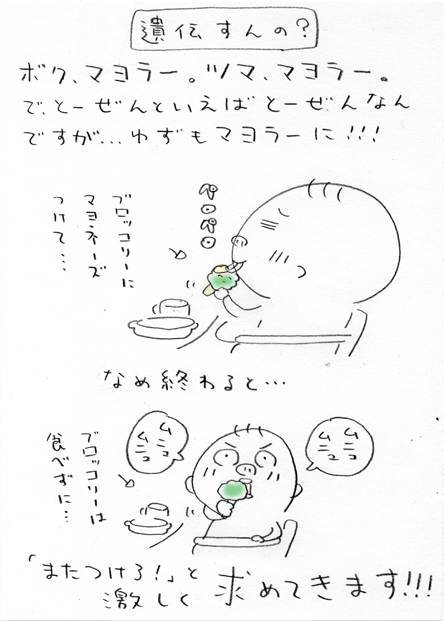 遺伝すんの?
ボク、マヨラー。ツマ、マヨラー。
で、とーぜんといえばとーぜんなん
ですが…ゆずもマヨラーに!!!
ペロペロ
ブロッコリーに
マヨネーズ
つけて…
なめ終わると…
ムニュムニュ
ムニュムニュ
ブロッコリーは
食べずに…
「またつけろ!」と
激しく求めてきます!!!